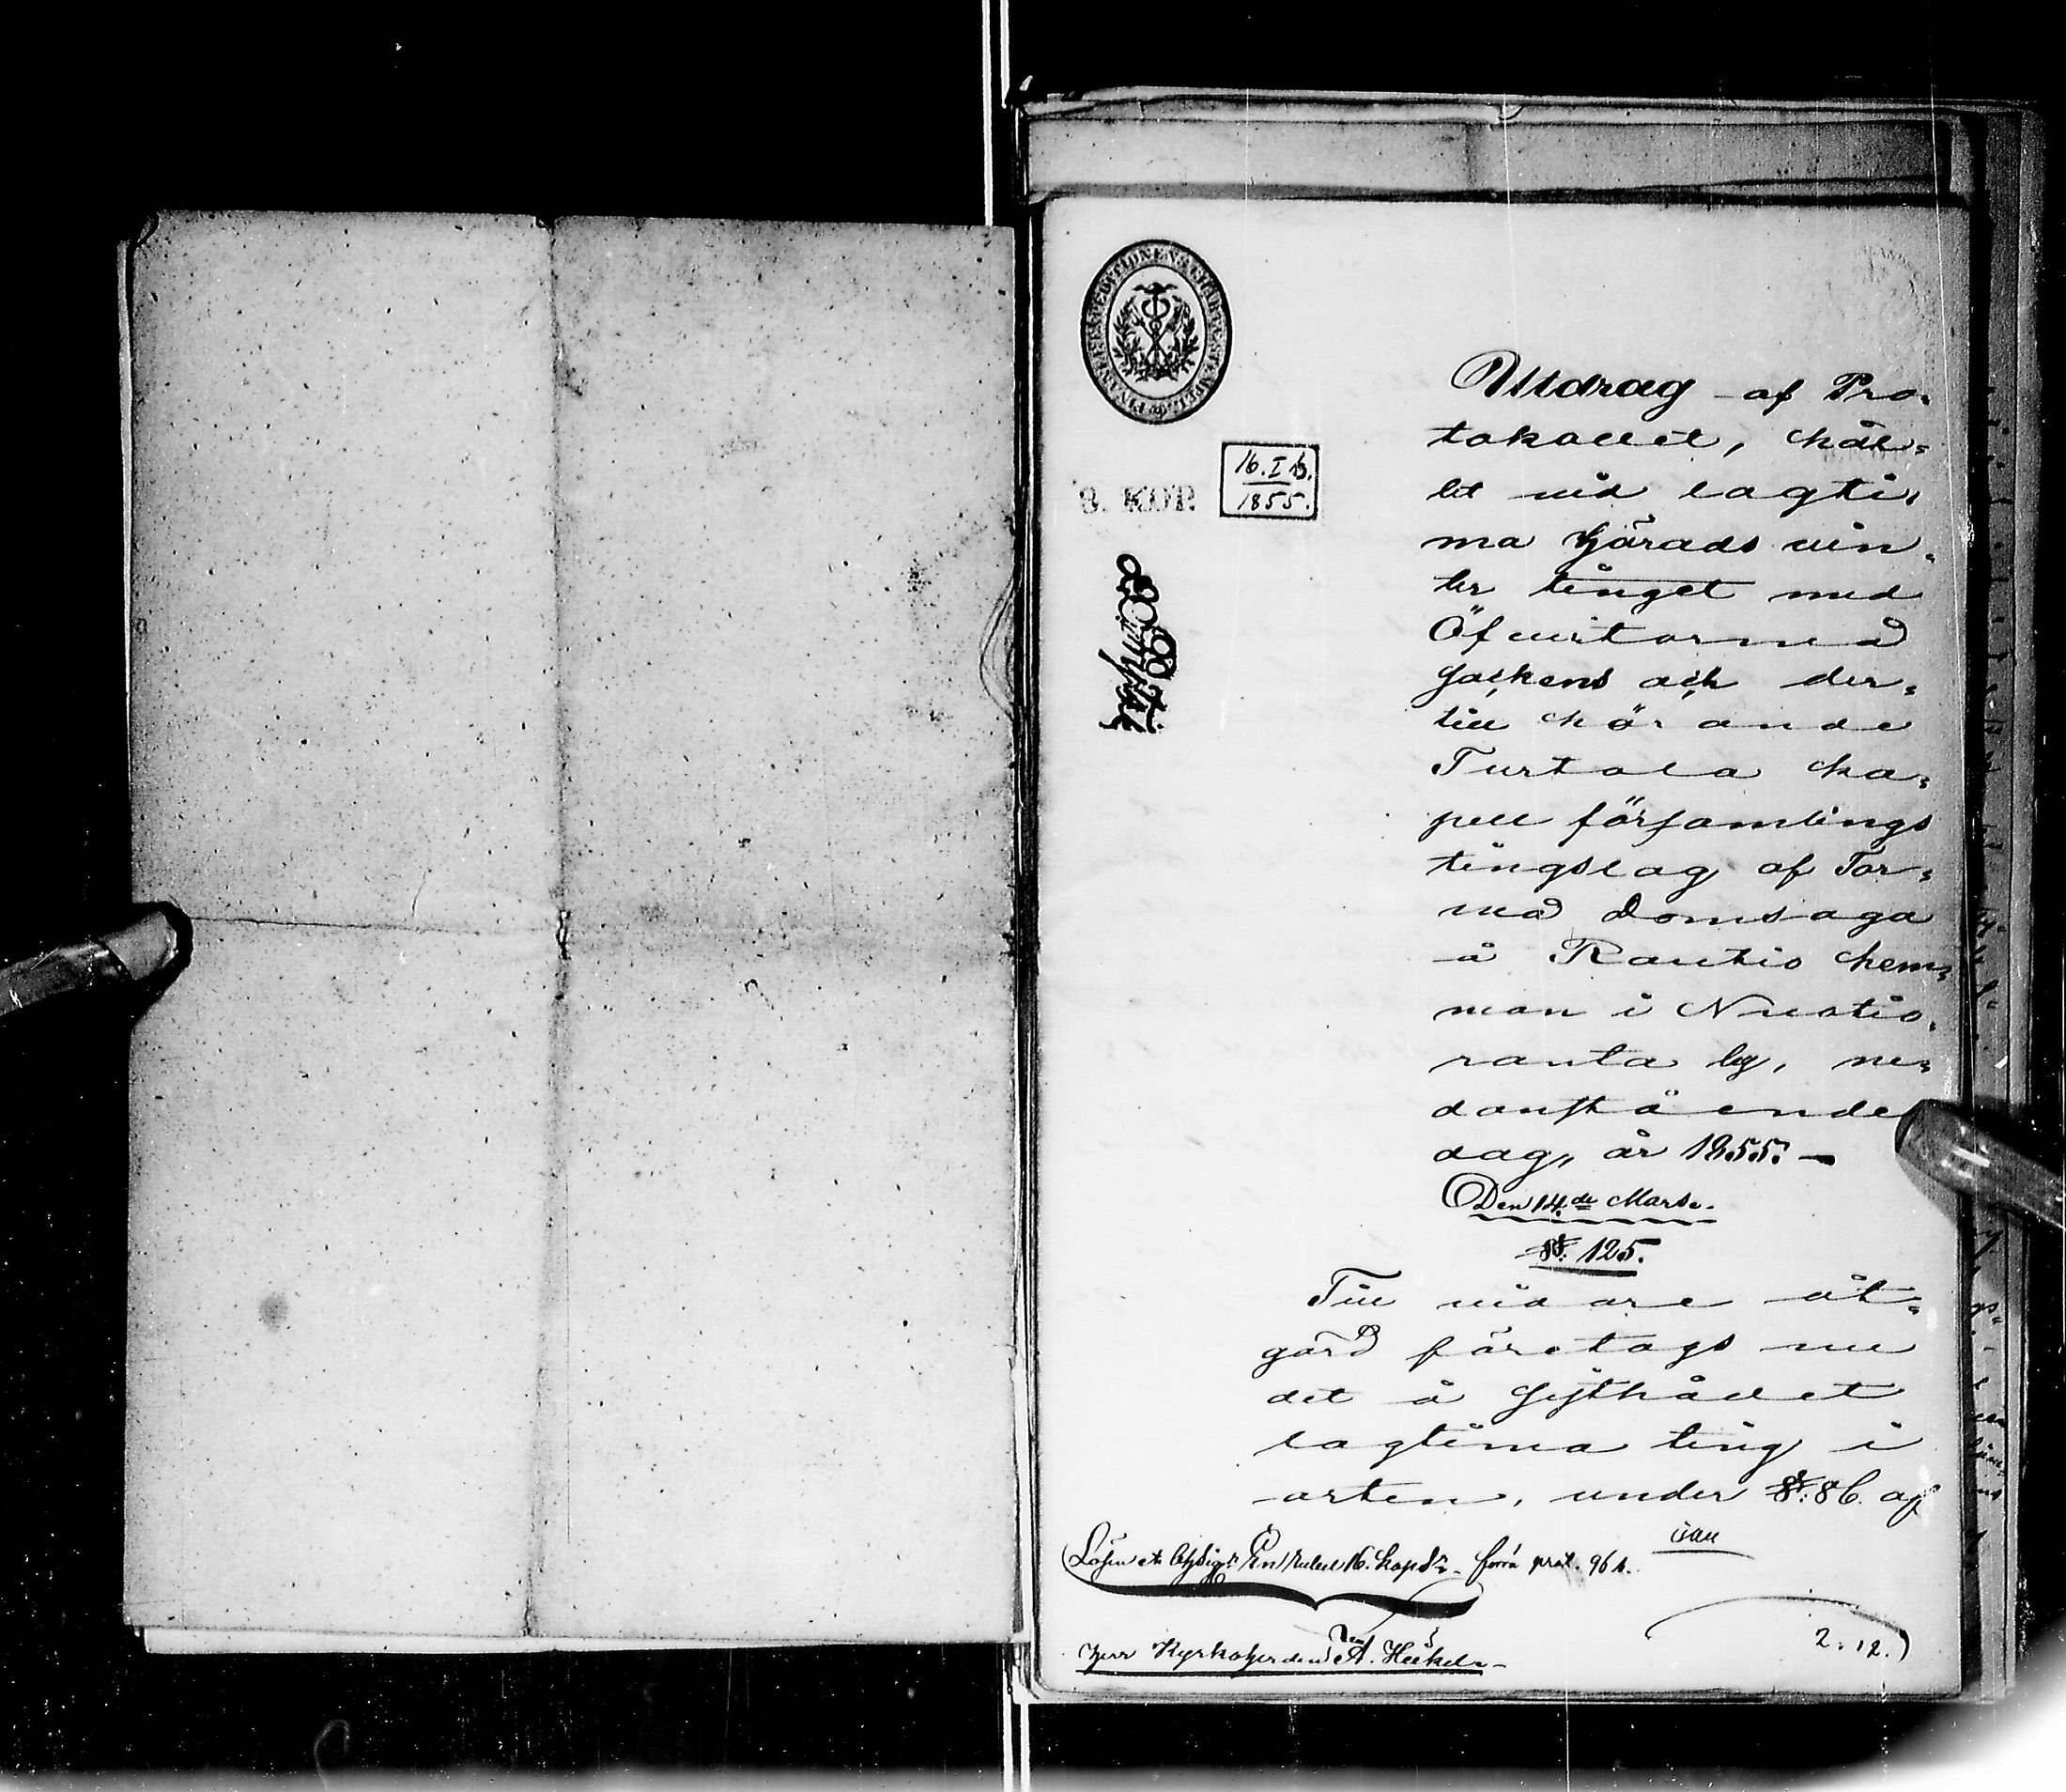 8. KOP.
16. I 13.
1855.
Utdrag af Pro-
tokollet, hål-
let vid lagti-
ma Härads vin-
ter tinget med
Öfvertorneå
Sockens och der-
till hörande
Turtola ka-
pell församlings
tingslag af Tor-
neå Domsaga
å Rautio hem-
man i Nuotio-
ranta by, ne-
danstående
dag, år 1855. —
Den 14de Mars.
§. 125.
Till vidare åt-
gärd företogs nu
det å sisthållet
lagtima ting i
orten, under §. 86. af
Lösen et Afsigt: En rubel 16. kop Sr.
Herr Kyrkoherden A. Heikel.
2: 12.)